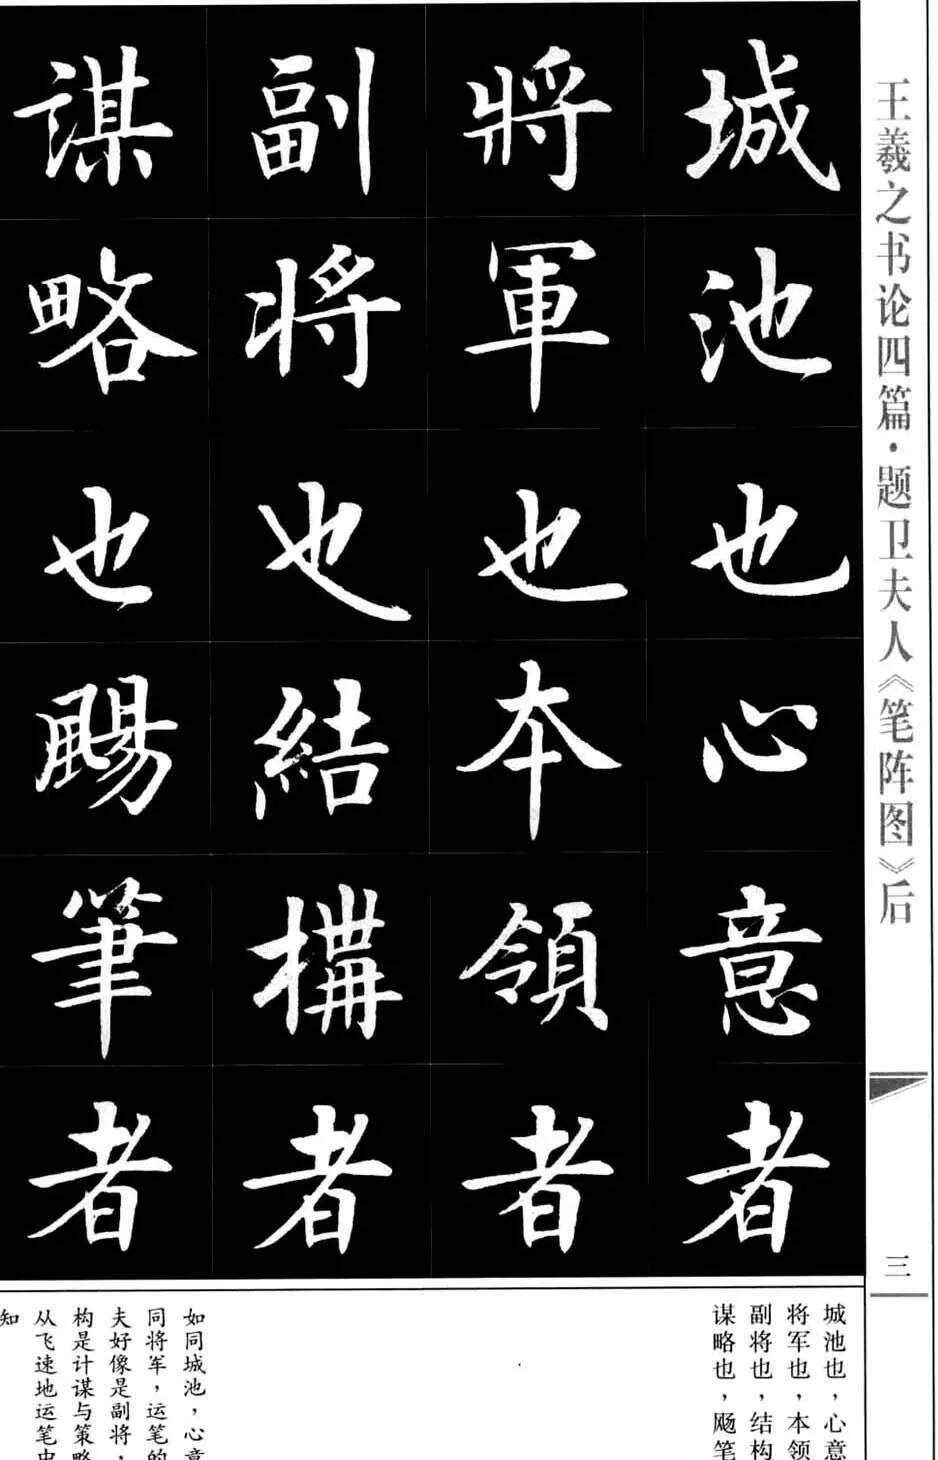 王羲之书论四篇·题卫夫人《笔阵图》后
三
城池也心意者
將軍也本領者
副将也結構者
謀略也颺筆者
城池也，心意
将军也，本领
副将也，结构
谋略也，飏笔
如同城池，心意
同将军，运笔的
夫好像是副将，
构是计谋与策略
从飞速地运笔中
知